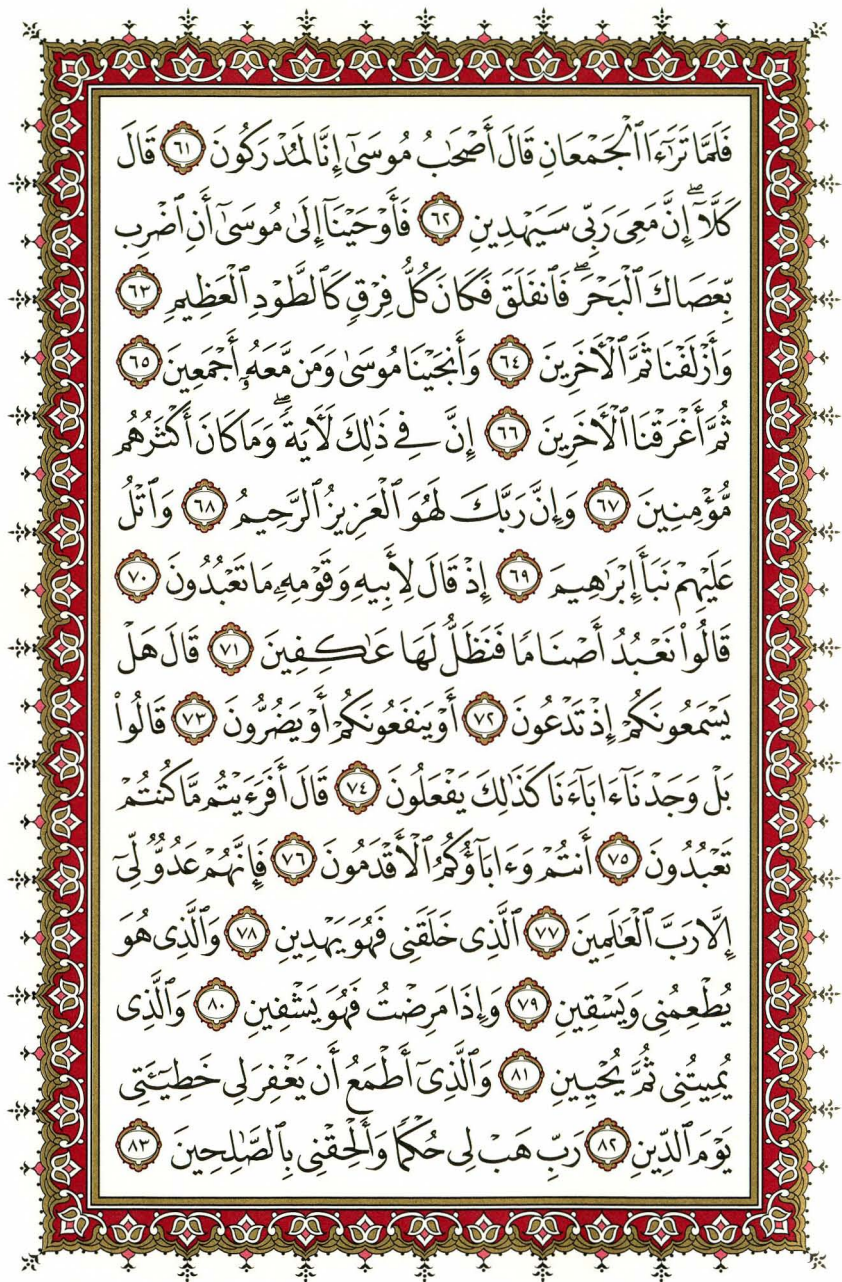 فَلَمَّا تَرَٰٓءَا ٱلْجَمْعَانِ قَالَ أَصْحَٰبُ مُوسَىٰٓ إِنَّا لَمُدْرَكُونَ ٦١ قَالَ
كَلَّآ ۖ إِنَّ مَعِىَ رَبِّى سَيَهْدِينِ ٦٢ فَأَوْحَيْنَآ إِلَىٰ مُوسَىٰٓ أَنِ ٱضْرِب
بِّعَصَاكَ ٱلْبَحْرَ ۖ فَٱنفَلَقَ فَكَانَ كُلُّ فِرْقٍ كَٱلطَّوْدِ ٱلْعَظِيمِ ٦٣
وَأَزْلَفْنَا ثَمَّ ٱلْأَخَرِينَ ٦٤ وَأَنجَيْنَا مُوسَىٰ وَمَن مَّعَهُۥٓ أَجْمَعِينَ ٦٥
ثُمَّ أَغْرَقْنَا ٱلْأَخَرِينَ ٦٦ إِنَّ فِى ذَٰلِكَ لَأٓيَةً ۖ وَمَا كَانَ أَكْثَرُهُم
مُّؤْمِنِينَ ٦٧ وَإِنَّ رَبَّكَ لَهُوَ ٱلْعَزِيزُ ٱلرَّحِيمُ ٦٨ وَٱتْلُ
عَلَيْهِمْ نَبَأَ إِبْرَٰهِيمَ ٦٩ إِذْ قَالَ لِأَبِيهِ وَقَوْمِهِۦ مَا تَعْبُدُونَ ٧٠
قَالُوا۟ نَعْبُدُ أَصْنَامًا فَنَظَلُّ لَهَا عَٰكِفِينَ ٧١ قَالَ هَلْ
يَسْمَعُونَكُمْ إِذْ تَدْعُونَ ٧٢ أَوْ يَنفَعُونَكُمْ أَوْ يَضُرُّونَ ٧٣ قَالُوا۟
بَلْ وَجَدْنَآ ءَابَآءَنَا كَذَٰلِكَ يَفْعَلُونَ ٧٤ قَالَ أَفَرَءَيْتُم مَّا كُنتُمْ
تَعْبُدُونَ ٧٥ أَنتُمْ وَءَابَآؤُكُمُ ٱلْأَقْدَمُونَ ٧٦ فَإِنَّهُمْ عَدُوٌّ لِّىٓ
إِلَّا رَبَّ ٱلْعَٰلَمِينَ ٧٧ ٱلَّذِى خَلَقَنِى فَهُوَ يَهْدِينِ ٧٨ وَٱلَّذِى هُوَ
يُطْعِمُنِى وَيَسْقِينِ ٧٩ وَإِذَا مَرِضْتُ فَهُوَ يَشْفِينِ ٨٠ وَٱلَّذِى
يُمِيتُنِى ثُمَّ يُحْيِينِ ٨١ وَٱلَّذِىٓ أَطْمَعُ أَن يَغْفِرَ لِى خَطِيٓـَٔتِى
يَوْمَ ٱلدِّينِ ٨٢ رَبِّ هَبْ لِى حُكْمًا وَأَلْحِقْنِى بِٱلصَّٰلِحِينَ ٨٣